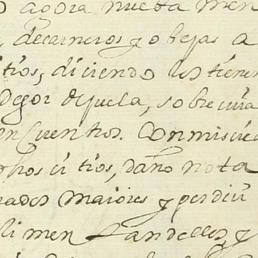 o agora nueta men
, decarneros y obejas a
tios, diciendo los tienen
degor dequela, sobre cuia
en cuentros. Con misi
hos citios, daño nota
nados maiores y perdiu
limen tandelles y